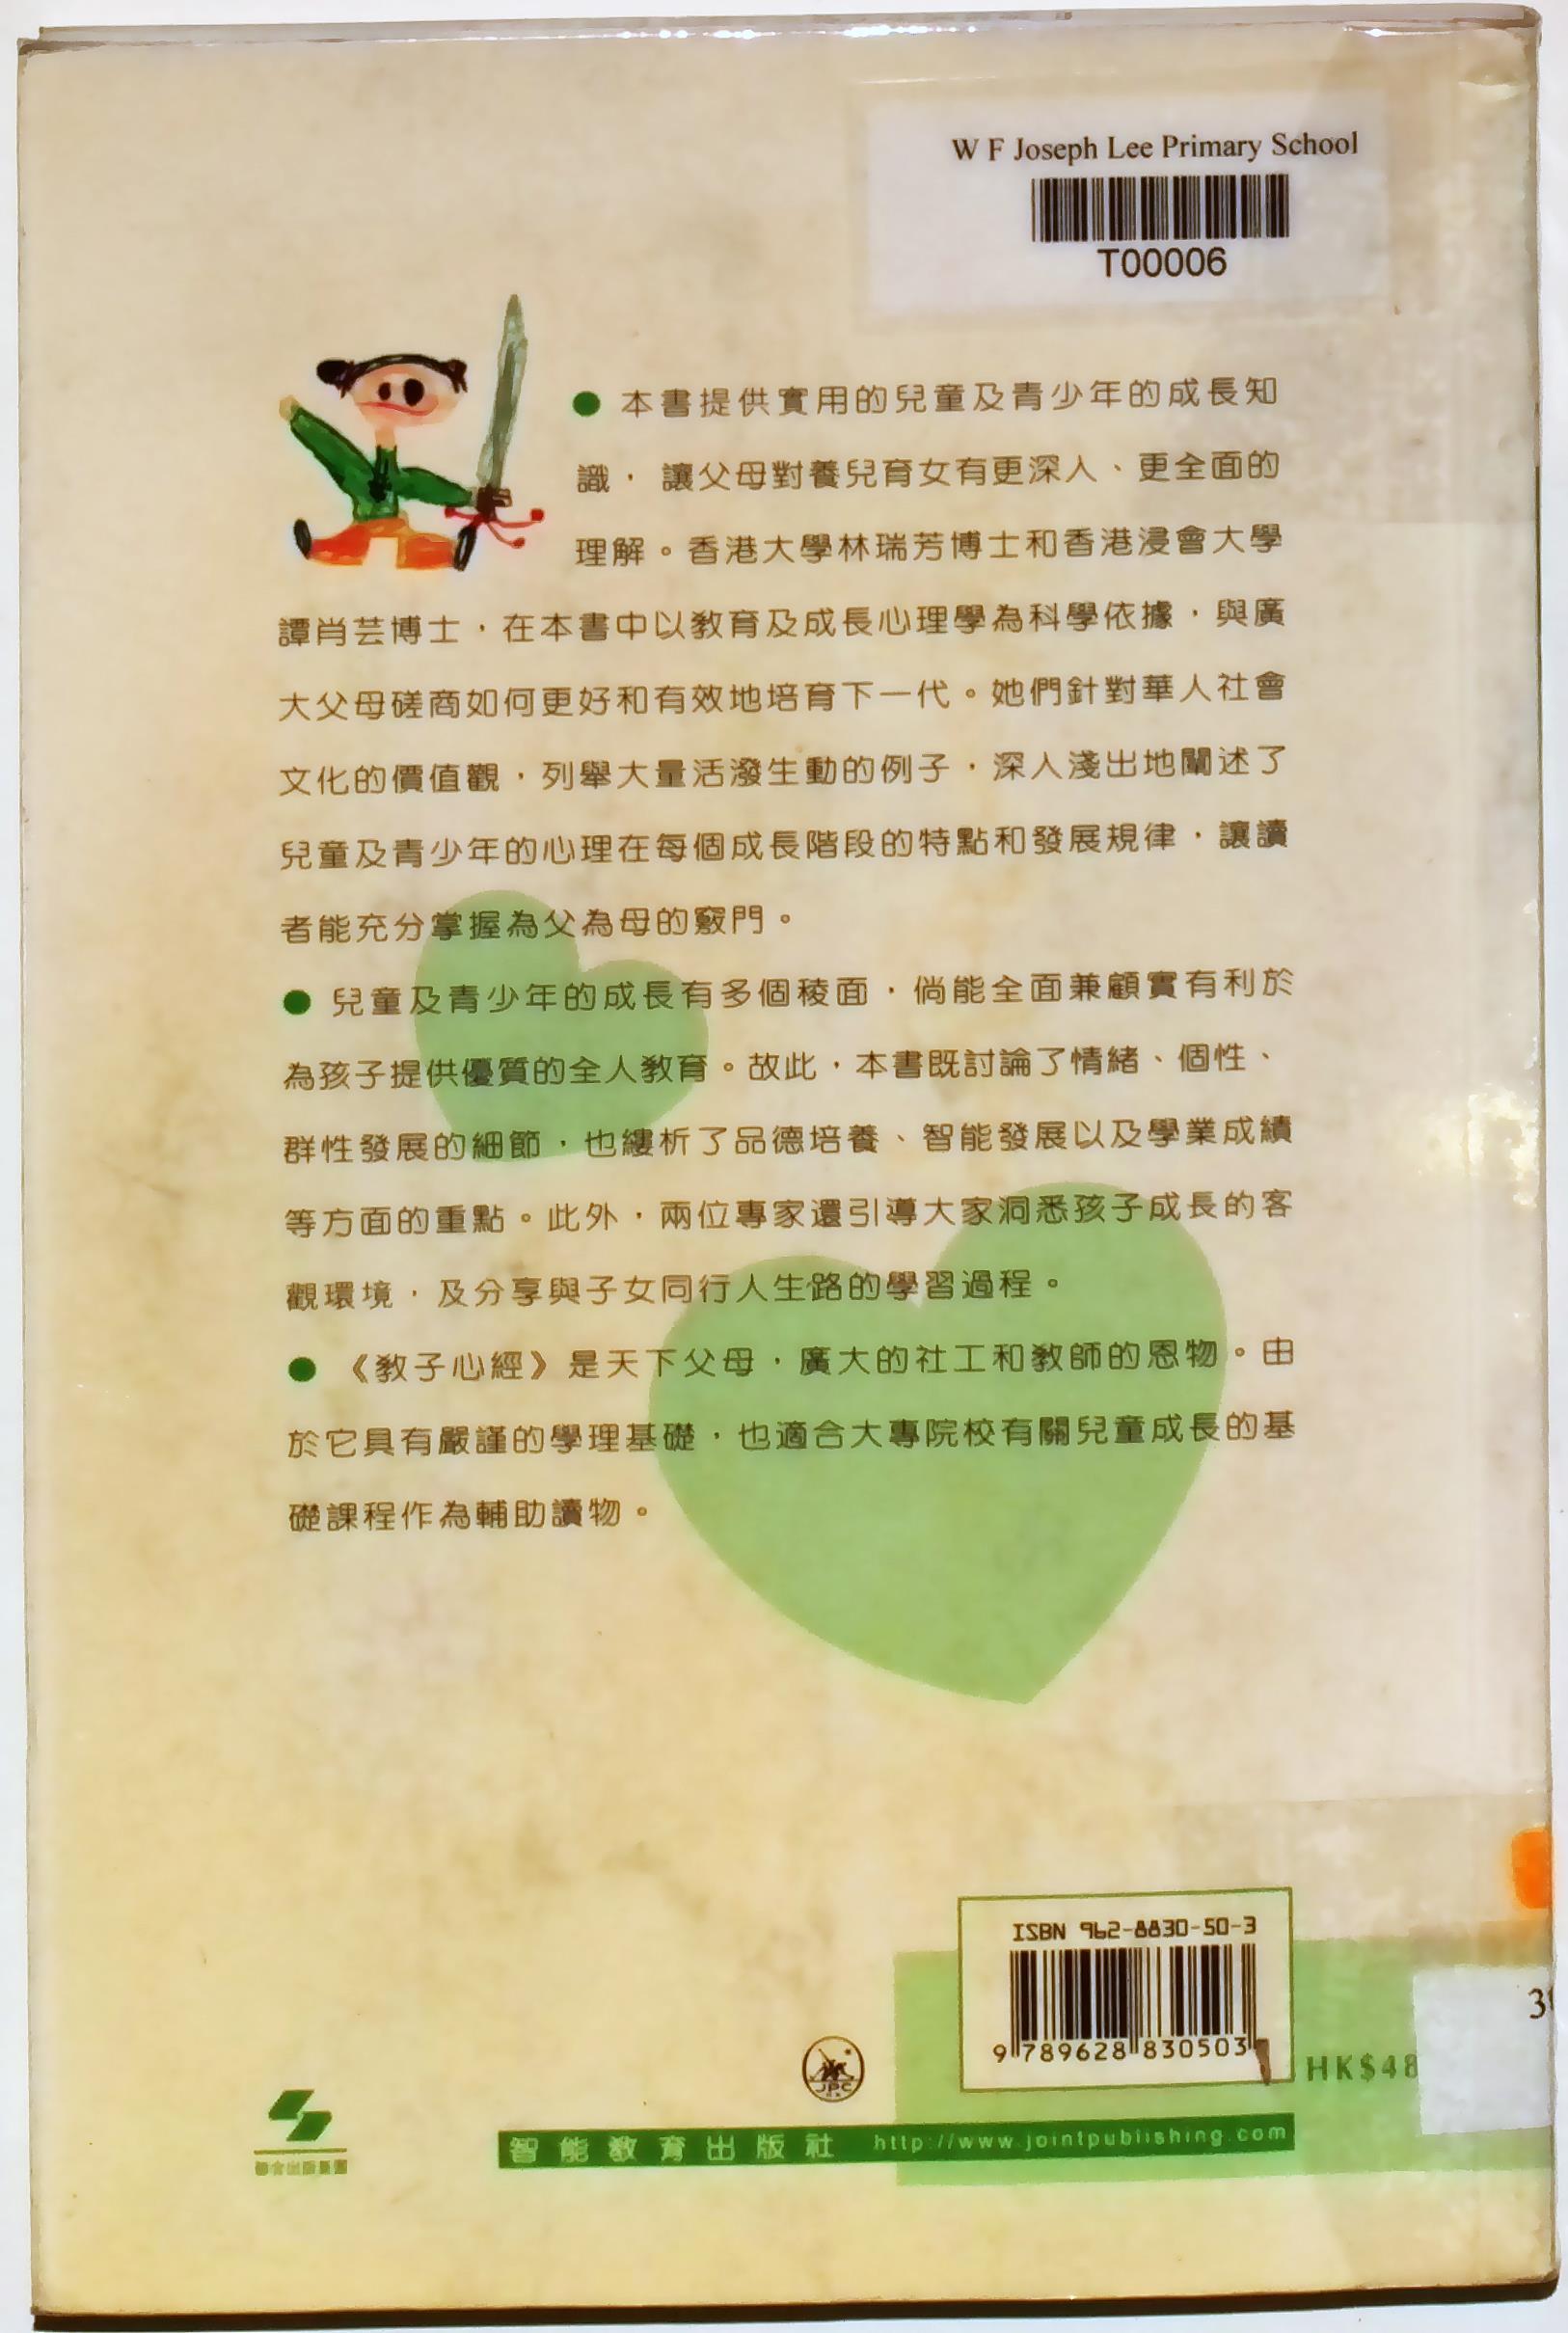 W F Joseph Lee Primary School
T00006
● 本書提供實用的兒童及青少年的成長知
識，讓父母對養兒育女有更深入、更全面的
理解。香港大學林瑞芳博士和香港浸會大學
譚肖芸博士，在本書中以教育及成長心理學為科學依據，與廣
大父母磋商如何更好和有效地培育下一代。她們針對華人社會
文化的價值觀，列舉大量活潑生動的例子，深入淺出地闡述了
兒童及青少年的心理在每個成長階段的特點和發展規律，讓讀
者能充分掌握為父為母的竅門。
● 兒童及青少年的成長有多個稜面，倘能全面兼顧實有利於
為孩子提供優質的全人教育。故此，本書既討論了情緒、個性、
群性發展的細節，也縷析了品德培養、智能發展以及學業成績
等方面的重點。此外，兩位專家還引導大家洞悉孩子成長的客
觀環境，及分享與子女同行人生路的學習過程。
● 《教子心經》是天下父母，廣大的社工和教師的恩物。由
於它具有嚴謹的學理基礎，也適合大專院校有關兒童成長的基
礎課程作為輔助讀物。
ISBN 962-8830-50-3
9 789628 830503
HK$48
JPC
聯合出版集團
智能教育出版社 http://www.jointpublishing.com